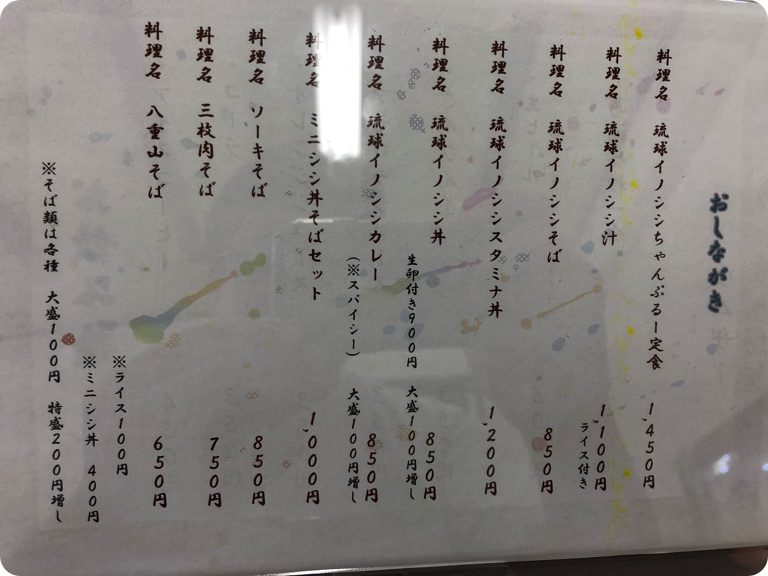 おしながき
料理名 琉球イノシシちゃんぷるー定食 1,450円
料理名 琉球イノシシ汁 1,100円
ライス付き
料理名 琉球イノシシそば 850円
料理名 琉球イノシシスタミナ丼 1,200円
料理名 琉球イノシシ丼 850円
生卵付き900円 大盛100円増し
料理名 琉球イノシシカレー 850円
(※スパイシー) 大盛100円増し
料理名 ミニシシ丼そばセット 1,000円
料理名 ソーキそば 850円
料理名 三枚肉そば 750円
料理名 八重山そば 650円
※ライス100円
※ミニシシ丼 400円
※そば類は各種 大盛100円 特盛200円増し